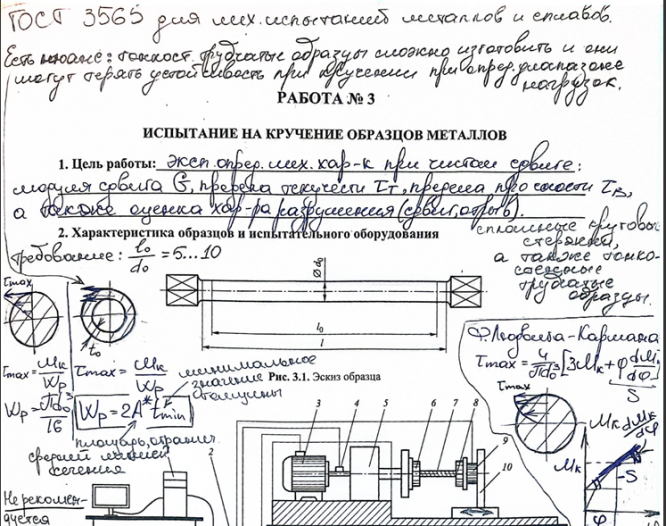 ГОСТ 3565 для мех. испытаний металлов и сплавов.
Есть нюанс: тонкост. трубчатые образцы сложно изготовить и они
могут терять устойчивость при кручении при опред. диапазоне
нагрузок.
РАБОТА № 3
ИСПЫТАНИЕ НА КРУЧЕНИЕ ОБРАЗЦОВ МЕТАЛЛОВ
1. Цель работы: эксп. опред. мех. хар-к при чистом сдвиге:
модуля сдвига G, предела текучести τт, предела прочности τв,
а также оценка хар-ра разрушения (сдвиг, отрыв).
2. Характеристика образцов и испытательного оборудования
сплошные круговые
стержни,
а также тонко-
стенные
трубчатые
образцы.
требование: l₀/d₀ = 5...10
τmax
Ø d₀
l₀
l
t₀
τmax = Мк/Wρ
τmax = Мк/Wρ
минимальное
значение
толщины
Wρ = πd₀³/16
Wρ = 2A* tmin
площадь, огранич.
средней линией
сечения
Рис. 3.1. Эскиз образца
Ф. Людвига-Кармана
τmax = 4/πd₀³ [3Мк + φ dМк/dφ]
S
τmax
Мк
dМк/dφ
Мк
S
φ
3 4 5 6 7 8
9
10
2
Не рекомен-
дуется